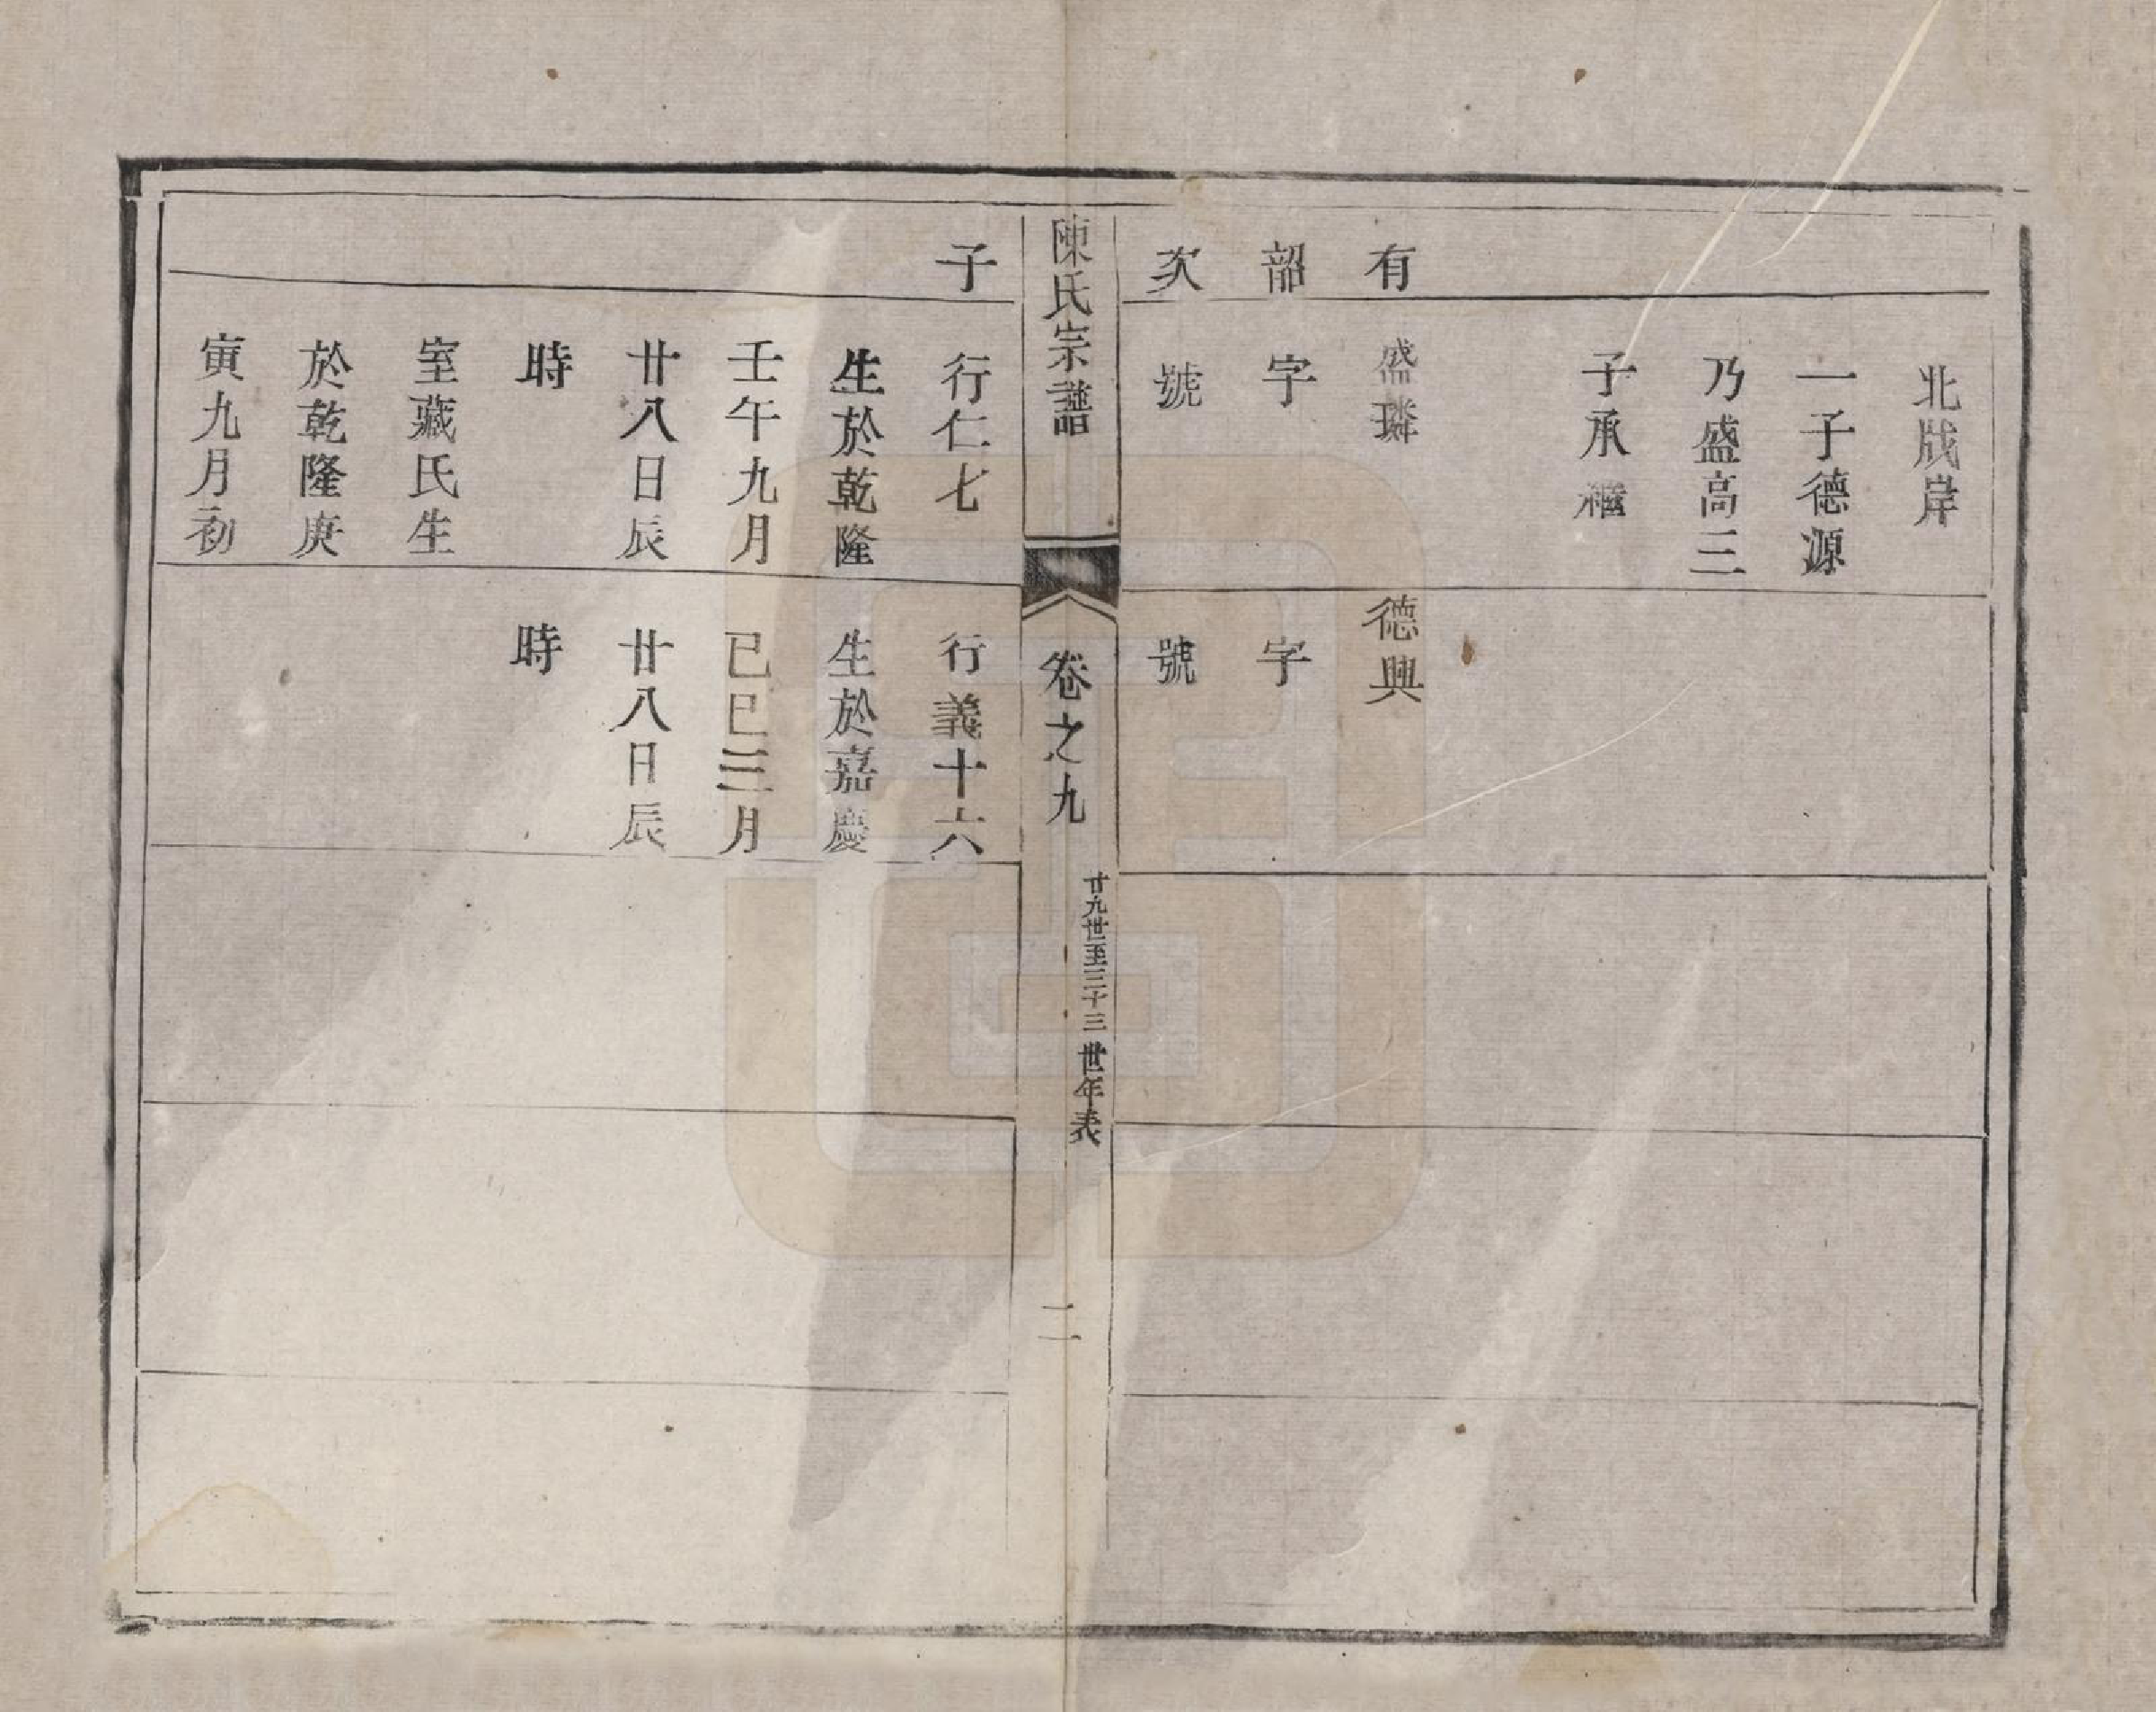 北戙岸
一子德源
乃盛高三
子承繼
有
盛璘
德興
韶
字
字
次
號
號
陳氏宗譜
卷之九
廿九世至三十三世年表
二
子
行仁七
行義十六
生於乾隆
生於嘉慶
壬午九月
己巳三月
廿八日辰
廿八日辰
時
時
室藏氏生
於乾隆庚
寅九月初